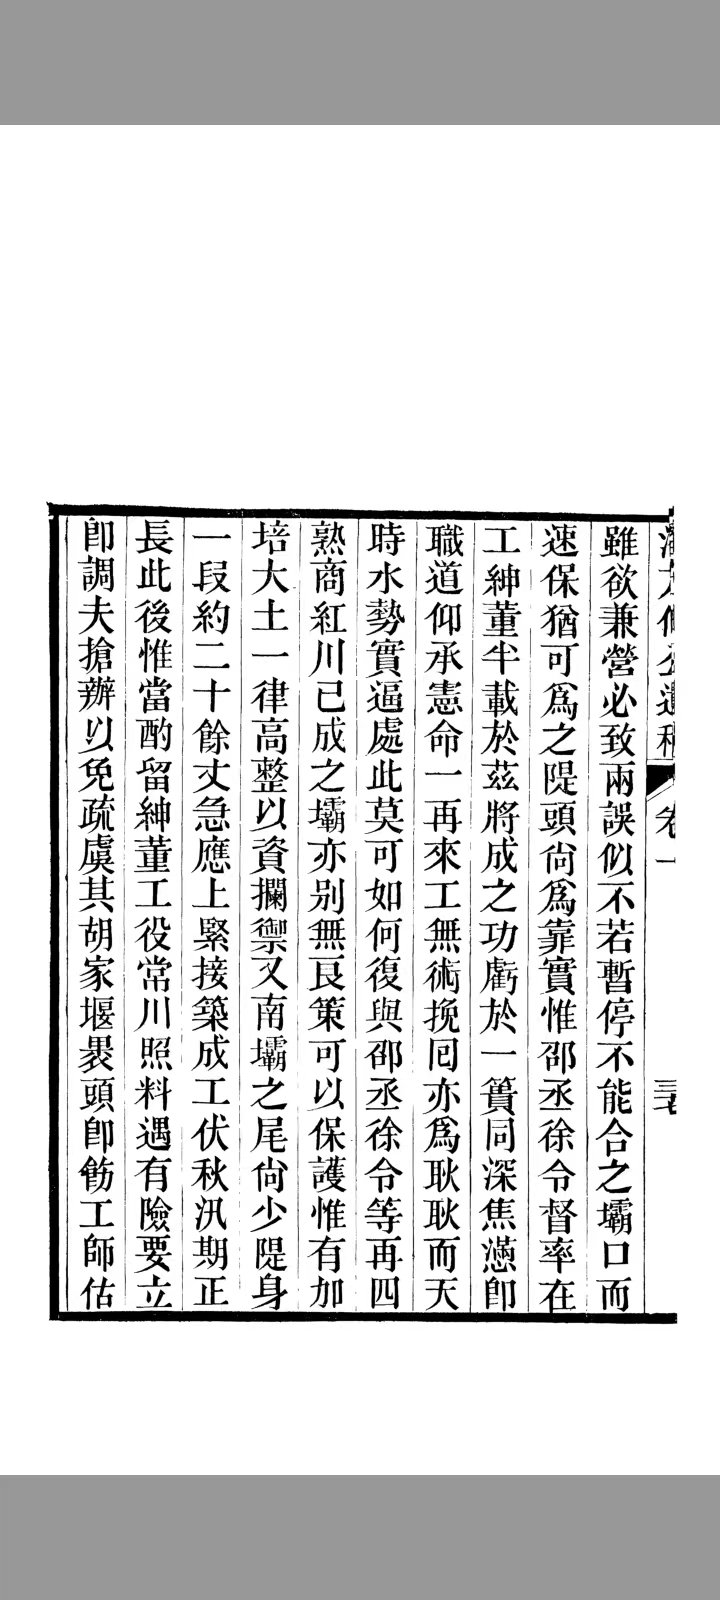 卷一
三七
雖欲兼營必致兩誤似不若暫停不能合之壩口而
速保猶可爲之隄頭尙爲靠實惟邵丞徐令督率在
工紳董半載於茲將成之功虧於一簣同深焦懣卽
職道仰承憲命一再來工無術挽囘亦爲耿耿而天
時水勢實逼處此莫可如何復與邵丞徐令等再四
熟商紅川已成之壩亦别無良策可以保護惟有加
培大土一律高整以資攔禦又南壩之尾尙少隄身
一段約二十餘丈急應上緊接築成工伏秋汛期正
長此後惟當酌留紳董工役常川照料遇有險要立
卽調夫搶辦以免疏虞其胡家堰㙮頭卽飭工師估